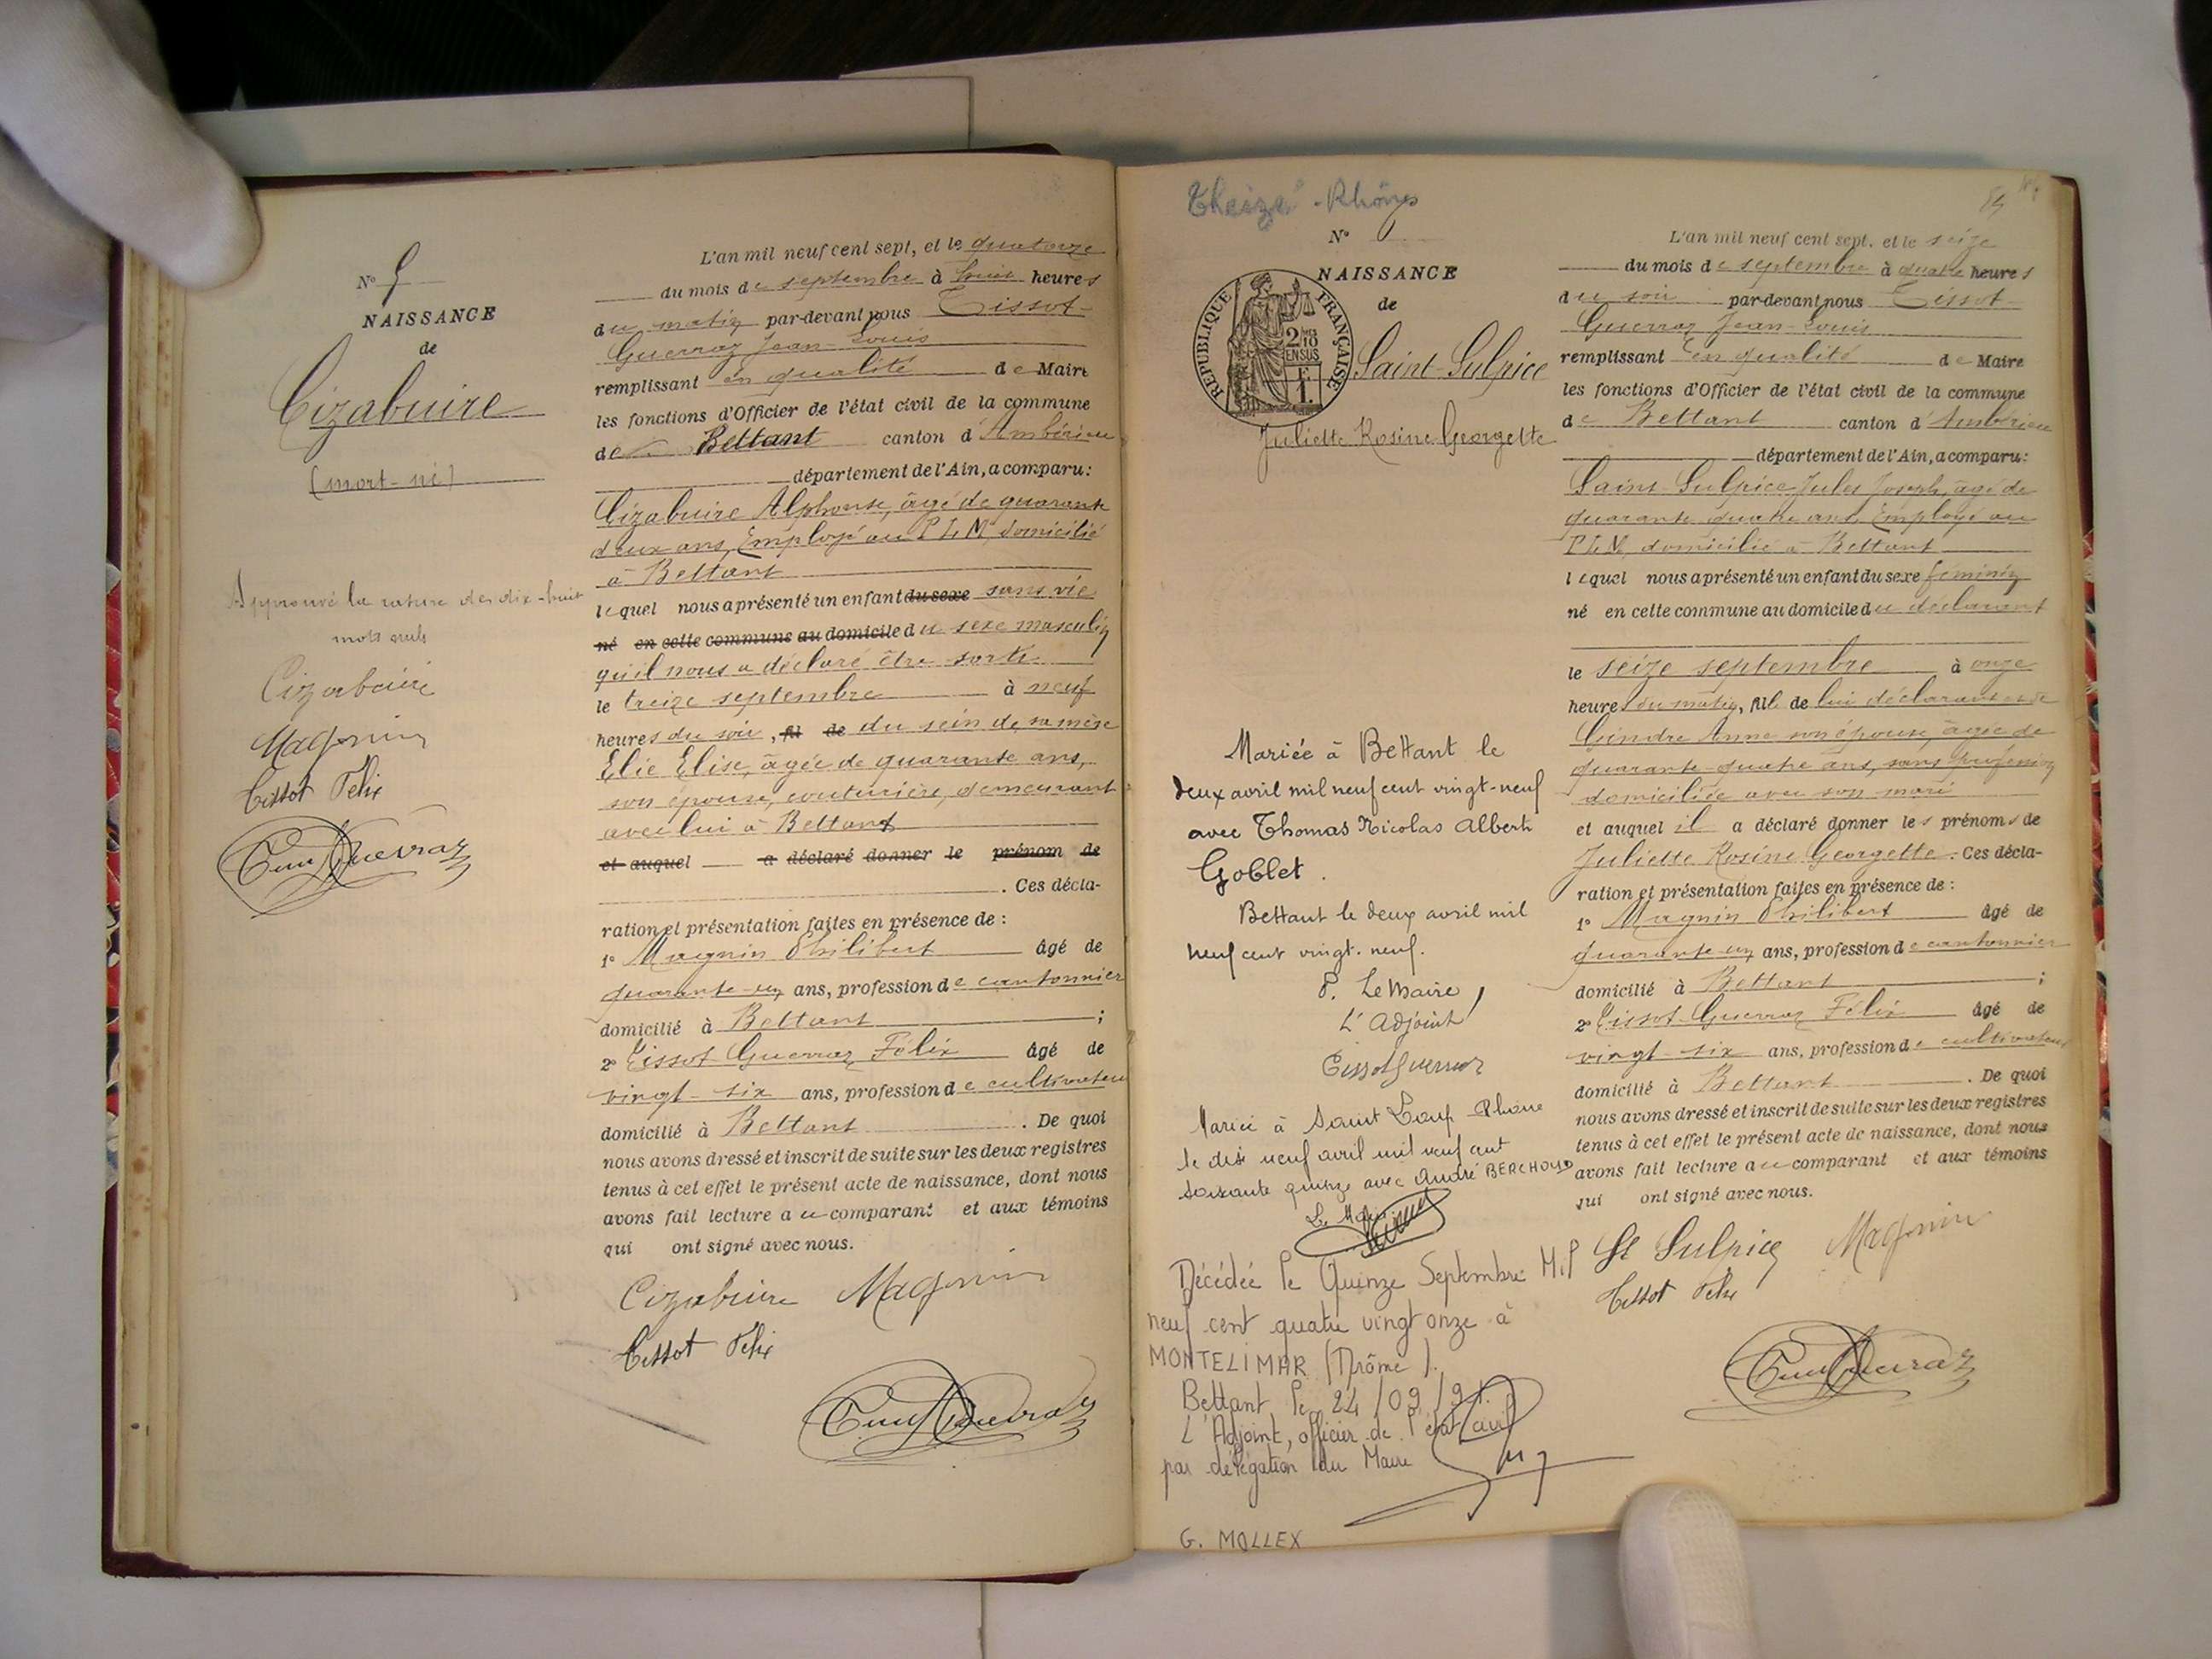 N° 5
NAISSANCE
de
Cizabuire
(mort-né)
Approuvé la rature des dix-huit
mots nuls
Cizabuire
Magnin
Tissot Félix
L'an mil neuf cent sept, et le quatorze
du mois de septembre à huit heures
du matin par-devant nous Tissot-
Guerraz Jean-Louis
remplissant en qualité de Maire
les fonctions d'Officier de l'état civil de la commune
de Bettant canton d'Ambérieu
département de l'Ain, a comparu:
Cizabuire Alphonse, âgé de quarante
deux ans, Employé au P.L.M. domicilié
à Bettant
lequel nous a présenté un enfant du sexe sans vie
né en cette commune au domicile du sexe masculin
qu'il nous a déclaré être sorti
le treize septembre à neuf
heures du soir, fil de du sein de sa mère
Elie Elise, âgée de quarante ans,
son épouse, couturière, demeurant
avec lui à Bettant
et auquel a déclaré donner le prénom de
. Ces décla-
ration et présentation faites en présence de :
1° Magnin Philibert âgé de
quarante-un ans, profession de cantonnier
domicilié à Bettant ;
2° Tissot Guerraz Félix âgé de
vingt-six ans, profession de cultivateur
domicilié à Bettant . De quoi
nous avons dressé et inscrit de suite sur les deux registres
tenus à cet effet le présent acte de naissance, dont nous
avons fait lecture au comparant et aux témoins
qui ont signé avec nous.
Cizabuire Magnin
Tissot Félix
Theizé - Rhône
N° 6
NAISSANCE
de
RÉPUBLIQUE FRANÇAISE
2/10 EN SUS
1 F.
Saint-Sulpice
Juliette Rosine Georgette
Mariée à Bettant le
deux avril mil neuf cent vingt-neuf
avec Thomas Nicolas Albert
Goblet.
Bettant le deux avril mil
neuf cent vingt-neuf.
P. Le Maire,
L'adjoint
Tissot Guerraz
Mariée à Saint Loup Rhône
le dix neuf avril mil neuf cent
soixante quinze avec André BERCHOUD
Le Maire
Décédée le Quinze Septembre Mil
neuf cent quatre vingt onze à
MONTELIMAR (Drôme).
Bettant le 24/09/91
L'Adjoint, officier de l'état civil
par délégation du Maire
G. MOLLEX
84
L'an mil neuf cent sept, et le seize
du mois de septembre à quatre heures
du soir par-devant nous Tissot-
Guerraz Jean-Louis
remplissant en qualité de Maire
les fonctions d'Officier de l'état civil de la commune
de Bettant canton d'Ambérieu
département de l'Ain, a comparu:
Saint-Sulpice Jules Joseph, âgé de
quarante quatre ans, Employé au
P.L.M. domicilié à Bettant
lequel nous a présenté un enfant du sexe féminin
né en cette commune au domicile du déclarant
le seize septembre à onze
heures du matin, fille de lui déclarant et de
Gindre Anne son épouse, âgée de
quarante-quatre ans, sans profession
domiciliée avec son mari
et auquel il a déclaré donner les prénoms de
Juliette Rosine Georgette. Ces décla-
ration et présentation faites en présence de :
1° Magnin Philibert âgé de
quarante-un ans, profession de cantonnier
domicilié à Bettant ;
2° Tissot Guerraz Félix âgé de
vingt-six ans, profession de cultivateur
domicilié à Bettant . De quoi
nous avons dressé et inscrit de suite sur les deux registres
tenus à cet effet le présent acte de naissance, dont nous
avons fait lecture au comparant et aux témoins
qui ont signé avec nous.
St Sulpice Magnin
Tissot Félix